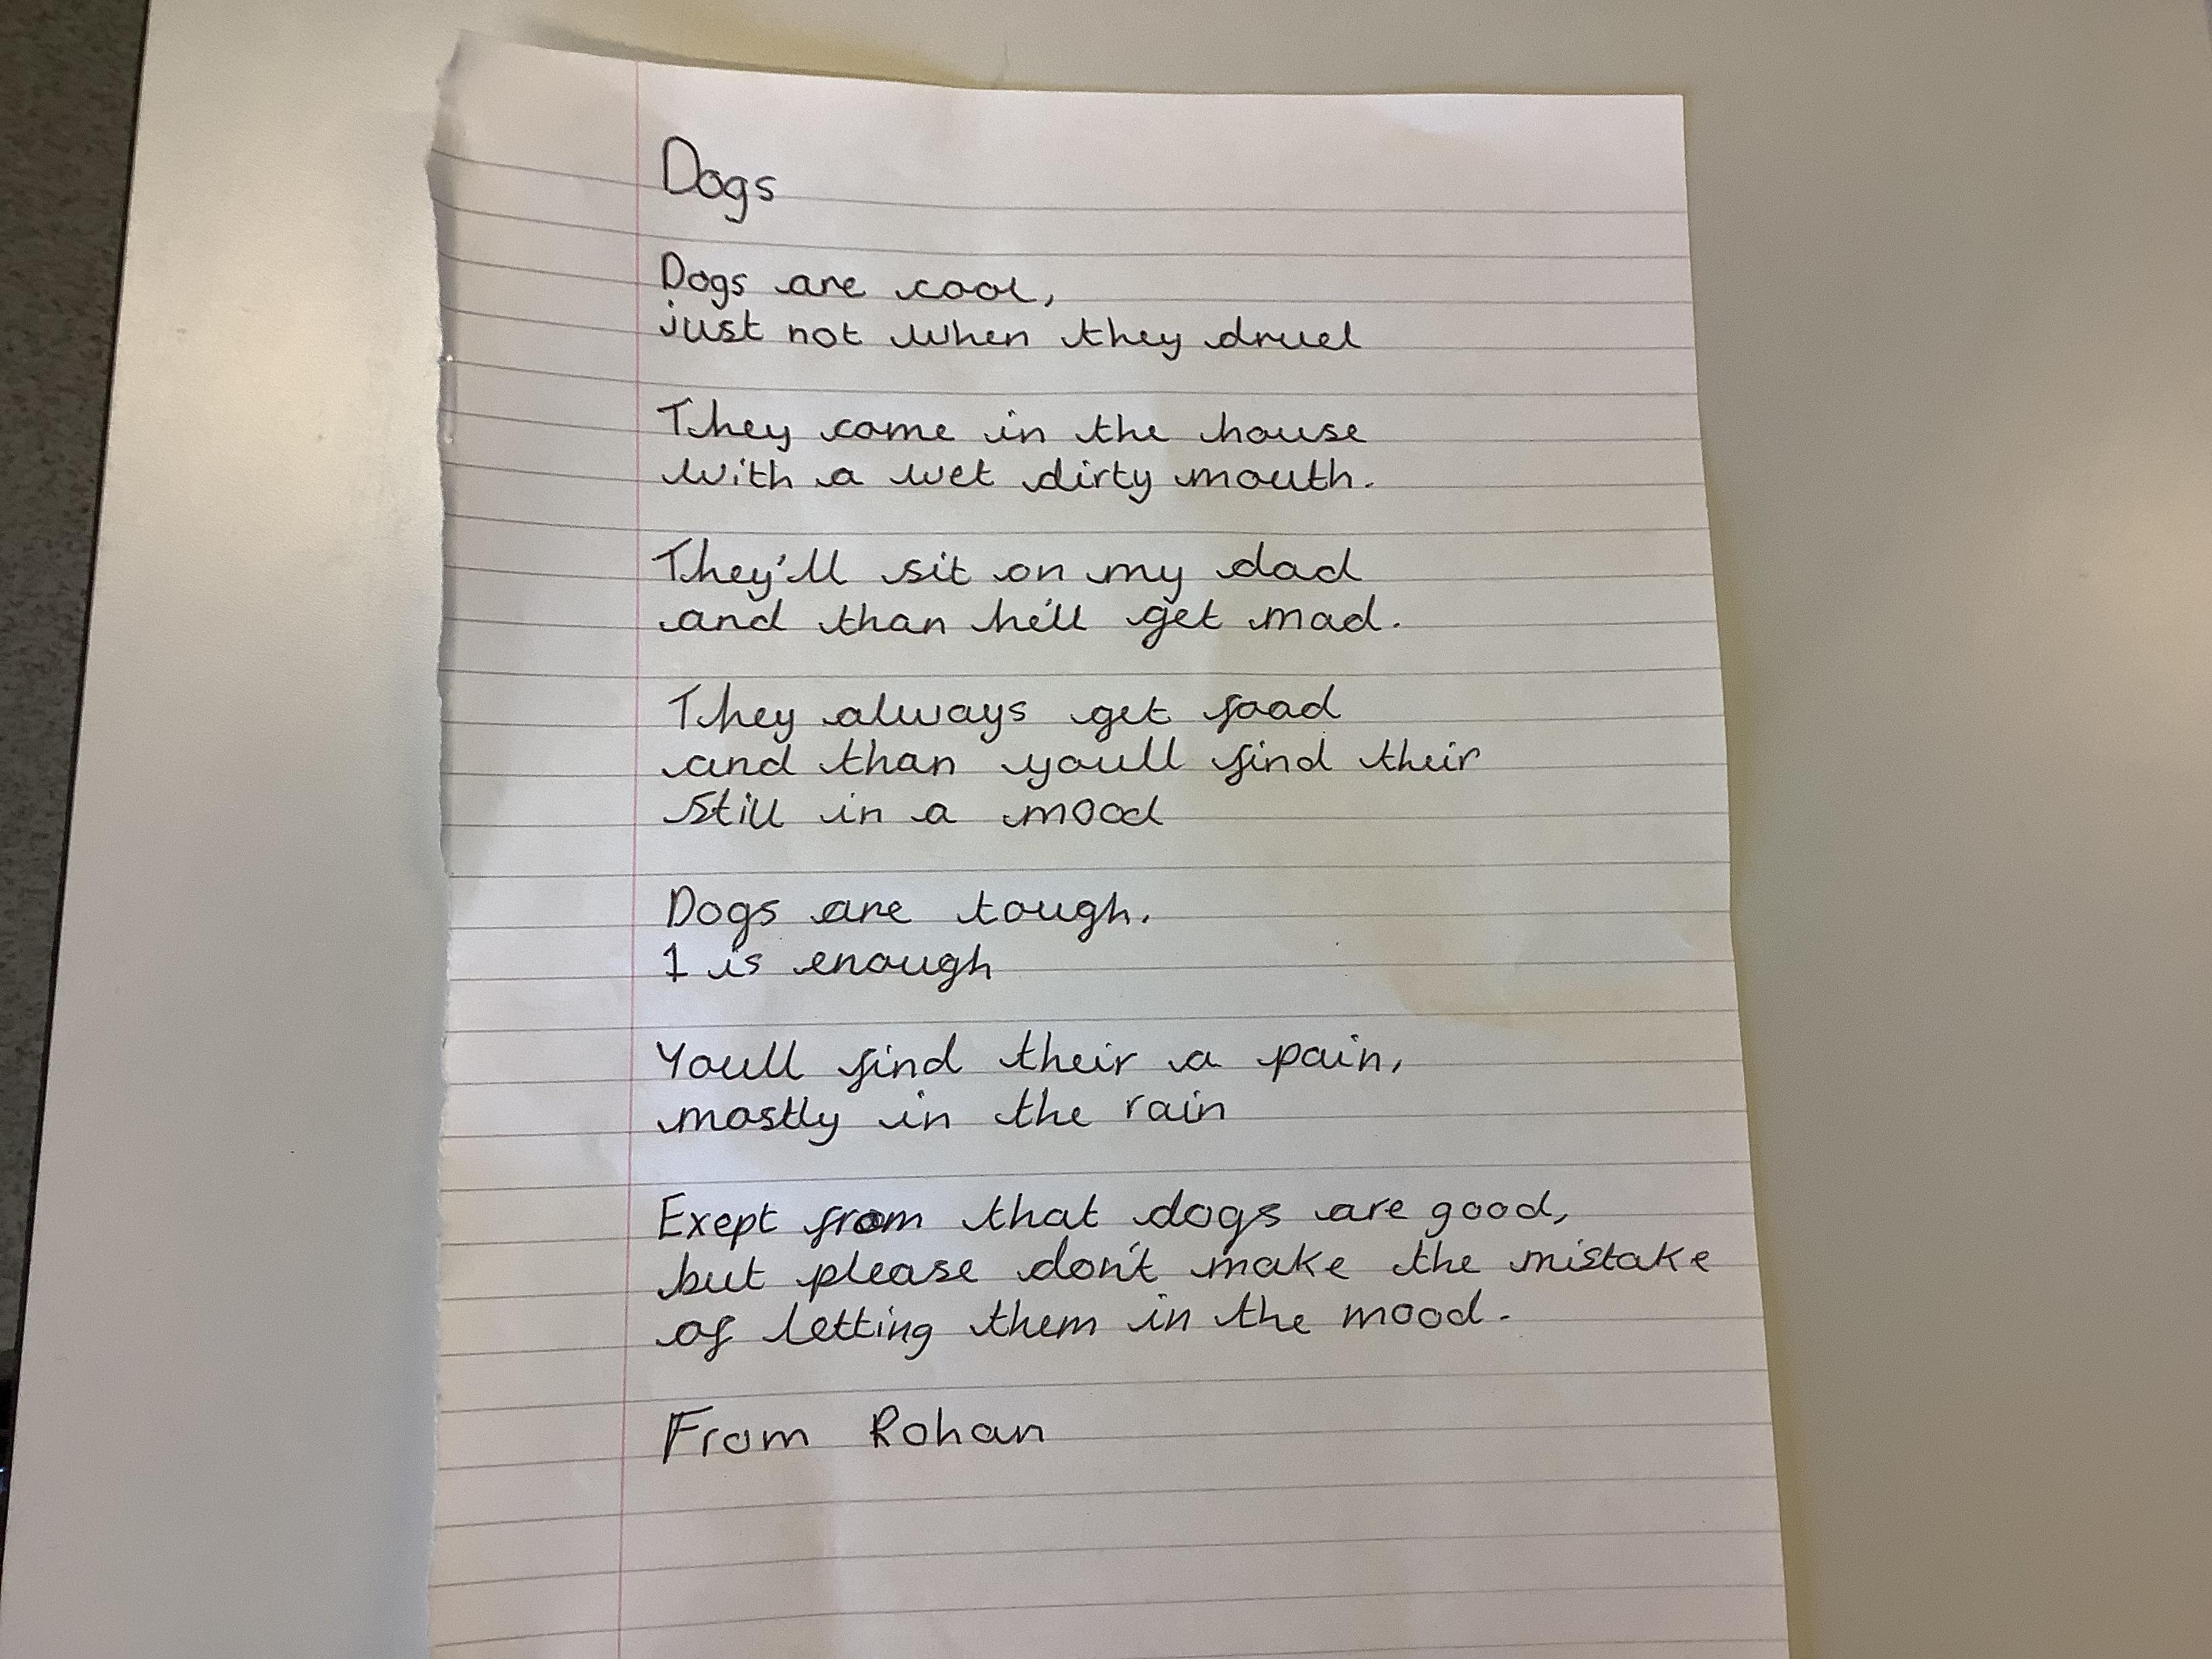 Dogs
Dogs are cool,
just not when they druel
They come in the house
with a wet dirty mouth.
They'll sit on my dad
and than he'll get mad.
They always get food
and than youll find their
still in a mood
Dogs are tough.
1 is enough
Youll find their a pain,
mostly in the rain
Exept from that dogs are good,
but please don't make the mistake
of letting them in the mood.
From Rohan